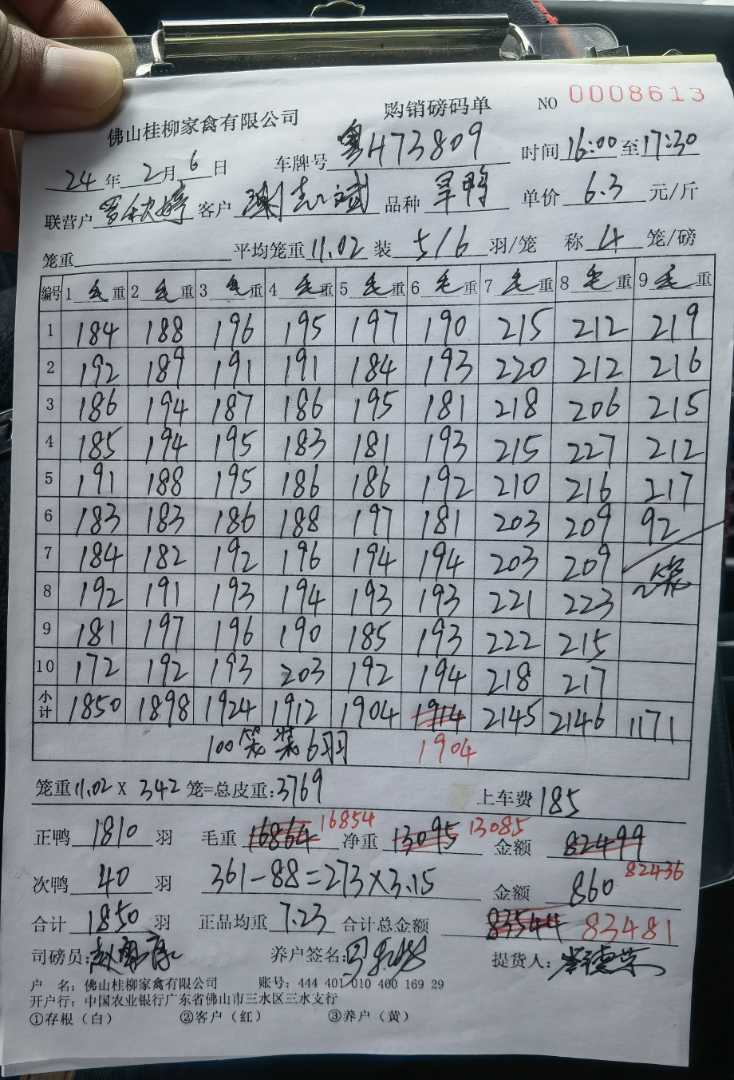 佛山桂柳家禽有限公司 购销磅码单 NO 0008613
24年2月6日 车牌号 粤H73809 时间16:00至17:30
联营户 客户 谢志斌 品种 旱鸭 单价 6.3 元/斤
笼重 平均笼重11.02 装 5/6 羽/笼 称 4 笼/磅
编号 1 毛 重 2 毛 重 3 毛 重 4 毛 重 5 毛 重 6 毛 重 7 毛 重 8 毛 重 9 毛 重
1 184 188 196 195 197 190 215 212 219
2 192 189 191 191 184 193 220 212 216
3 186 194 187 186 195 181 218 206 215
4 185 194 195 183 181 193 215 227 212
5 191 188 195 186 186 192 210 216 217
6 183 183 186 188 197 181 203 209 92
7 184 182 192 196 194 194 203 209 2笼
8 192 191 193 194 193 193 221 223
9 181 197 196 190 185 193 222 215
10 172 192 193 203 192 194 218 217
小计 1850 1898 1924 1912 1904 1914 2145 2146 1171
100笼装6羽 1904
笼重11.02 X 342 笼=总皮重:3769 上车费185
正鸭 1810 羽 毛重 16864 16854 净重 13095 13085 金额 82499
82436
次鸭 40 羽 361-88=273×3.15 金额 860
合计 1850 羽 正品均重 7.23 合计总金额 83544 83481
司磅员: 养户签名: 提货人:
户 名: 佛山桂柳家禽有限公司 账号: 444 401 010 400 169 29
开户行: 中国农业银行广东省佛山市三水区三水支行
①存根（白） ②客户（红） ③养户（黄）